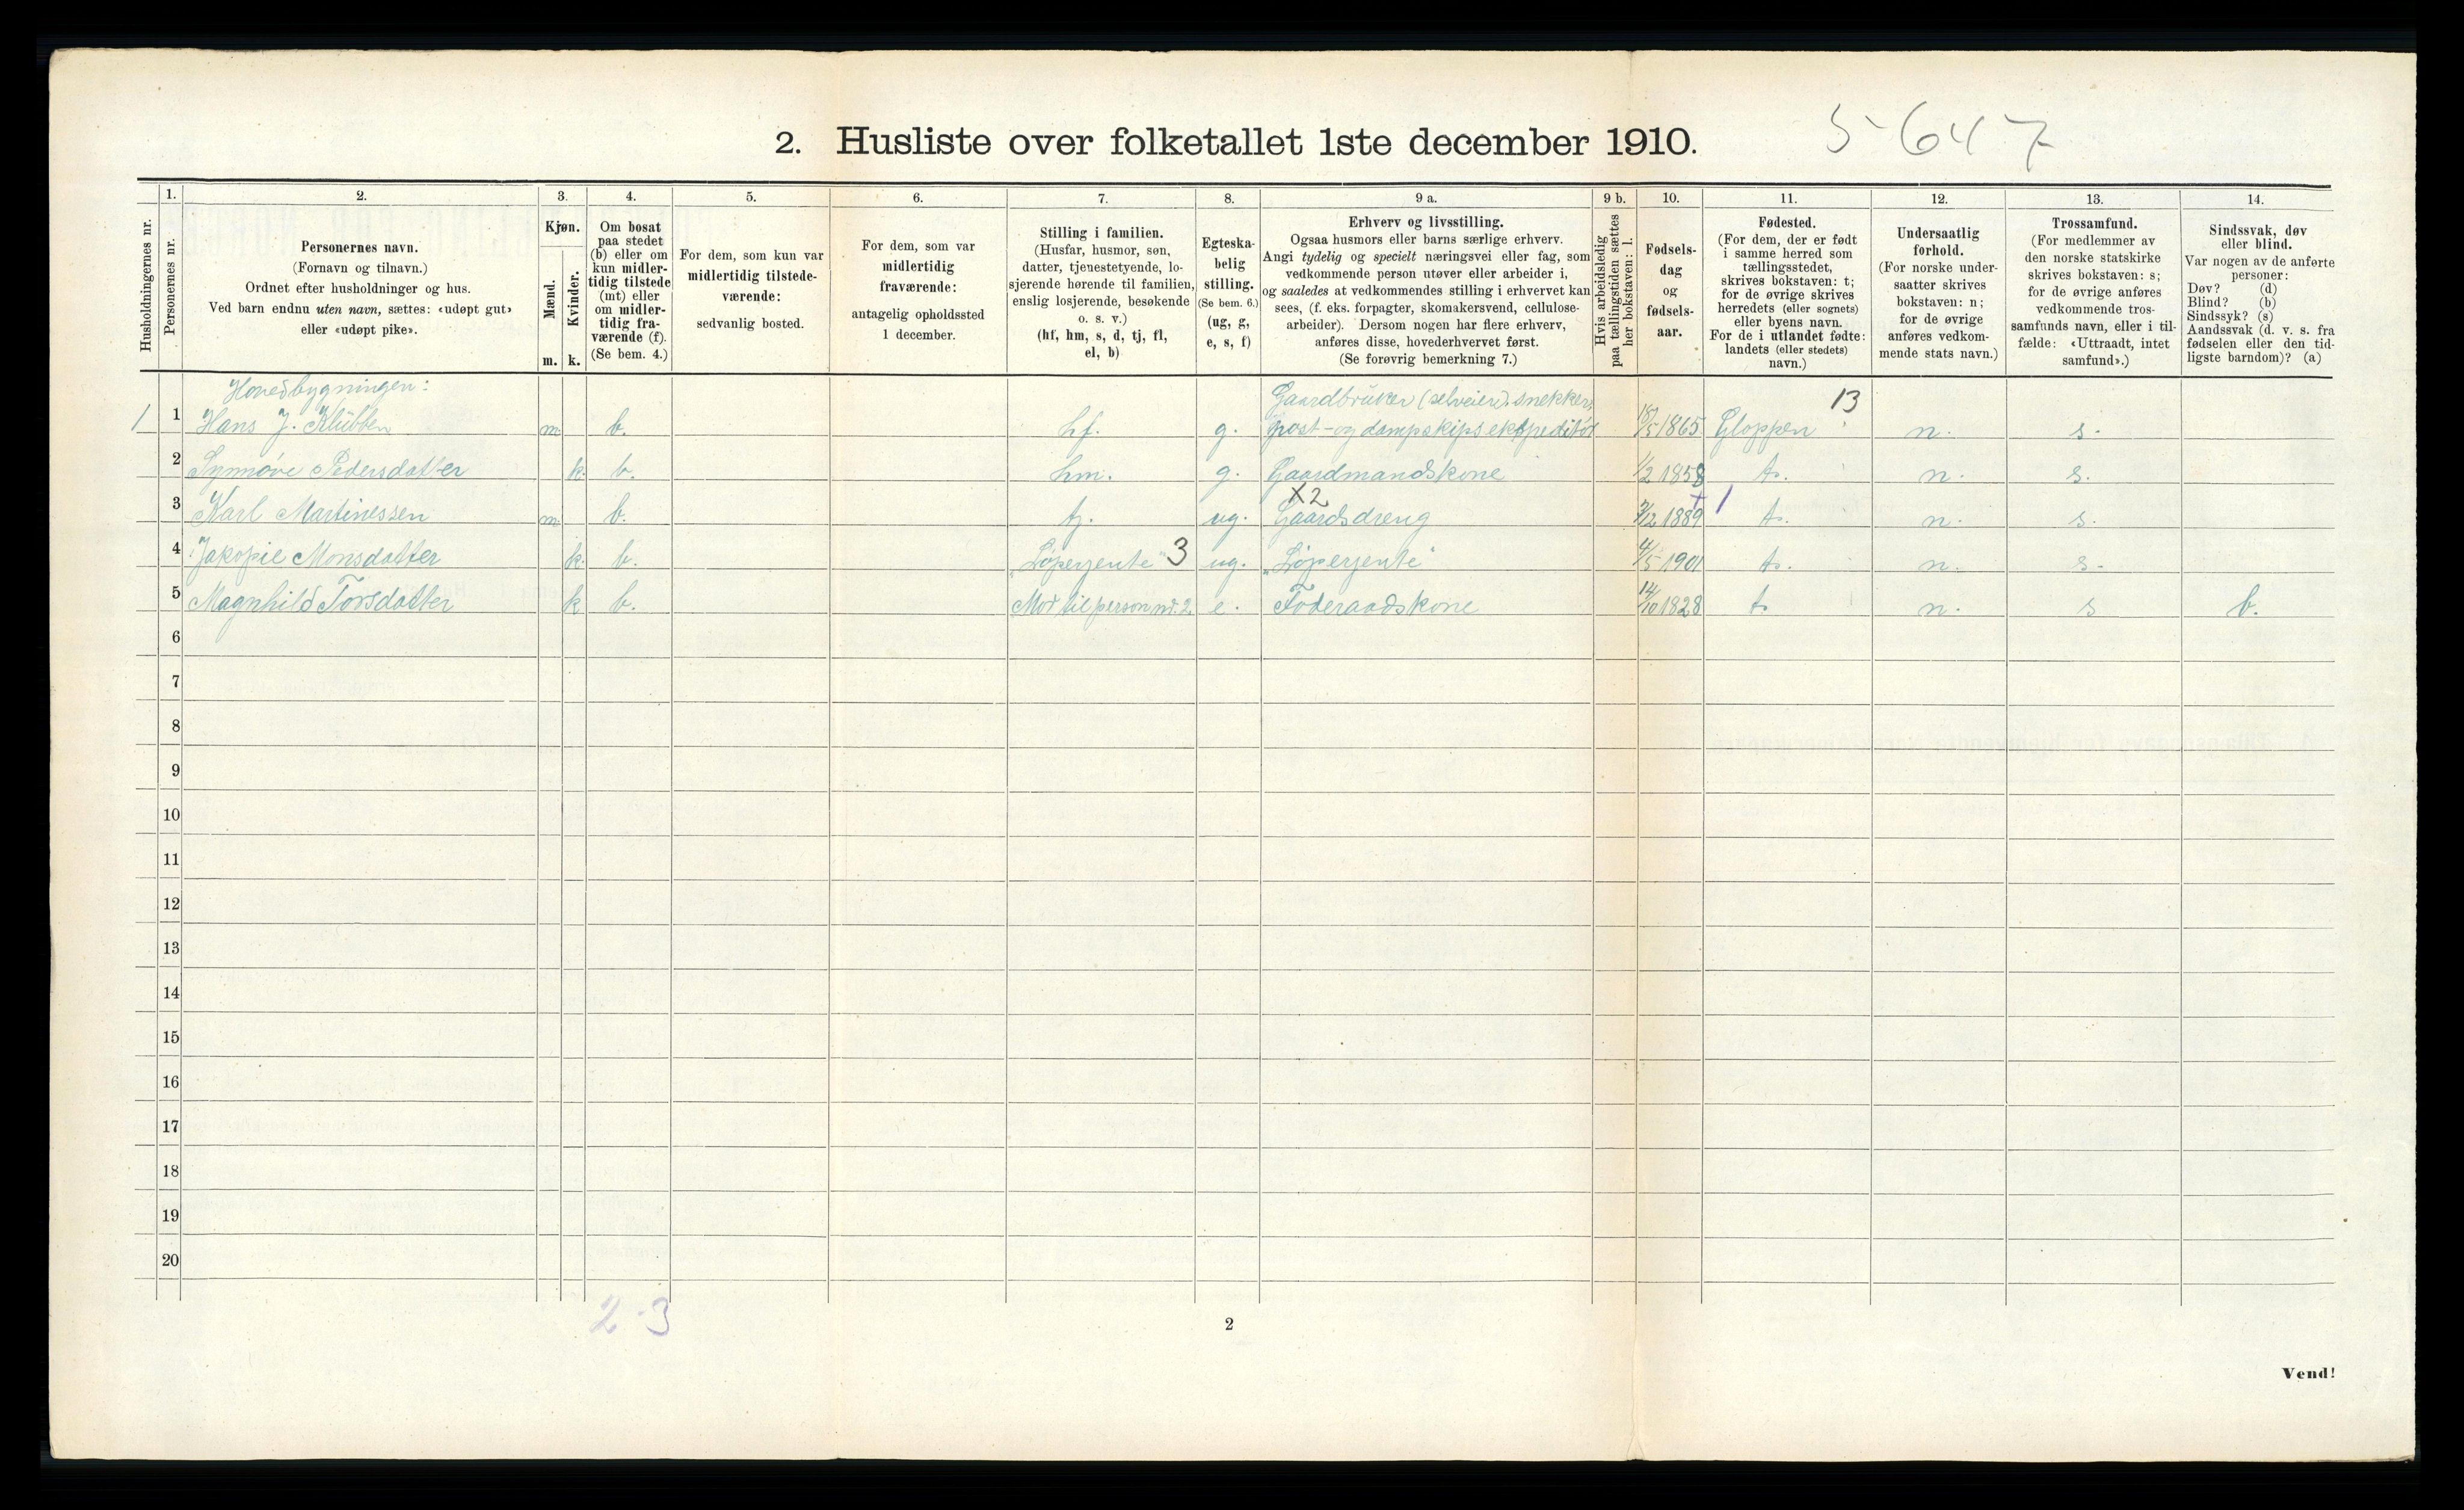 2. Husliste over folketallet 1ste december 1910.
5-647
Husholdningernes nr.
1.
Personernes nr.
2.
Personernes navn.
(Fornavn og tilnavn.)
Ordnet efter husholdninger og hus.
Ved barn endnu uten navn, sættes: «udøpt gut»
eller «udøpt pike».
3.
Kjøn.
Mænd.
Kvinder.
m. k.
4.
Om bosat
paa stedet
(b) eller om
kun midler-
tidig tilstede
(mt) eller
om midler-
tidig fra-
værende (f).
(Se bem. 4.)
5.
For dem, som kun var
midlertidig tilstede-
værende:
sedvanlig bosted.
6.
For dem, som var
midlertidig
fraværende:
antagelig opholdssted
1 december.
7.
Stilling i familien.
(Husfar, husmor, søn,
datter, tjenestetyende, lo-
sjerende hørende til familien,
enslig losjerende, besøkende
o. s. v.)
(hf, hm, s, d, tj, fl,
el, b)
8.
Egteska-
belig
stilling.
(Se bem. 6.)
(ug, g,
e, s, f)
9 a.
Erhverv og livsstilling.
Ogsaa husmors eller barns særlige erhverv.
Angi tydelig og specielt næringsvei eller fag, som
vedkommende person utøver eller arbeider i,
og saaledes at vedkommendes stilling i erhvervet kan
sees, (f. eks. forpagter, skomakersvend, cellulose-
arbeider). Dersom nogen har flere erhverv,
anføres disse, hovederhvervet først.
(Se forøvrig bemerkning 7.)
9 b.
Hvis arbeidsledig
paa tællingstiden sættes
her bokstaven: l.
10.
Fødsels-
dag
og
fødsels-
aar.
11.
Fødested.
(For dem, der er født
i samme herred som
tællingsstedet,
skrives bokstaven: t;
for de øvrige skrives
herredets (eller sognets)
eller byens navn.
For de i utlandet fødte:
landets (eller stedets)
navn.)
12.
Undersaatlig
forhold.
(For norske under-
saatter skrives
bokstaven: n;
for de øvrige
anføres vedkom-
mende stats navn.)
13.
Trossamfund.
(For medlemmer av
den norske statskirke
skrives bokstaven: s;
for de øvrige anføres
vedkommende tros-
samfunds navn, eller i til-
fælde: «Uttraadt, intet
samfund».)
14.
Sindssvak, døv
eller blind.
Var nogen av de anførte
personer:
Døv? (d)
Blind? (b)
Sindssyk? (s)
Aandssvak (d. v. s. fra
fødselen eller den tid-
ligste barndom)? (a)
Hovedbygningen:
Gaardbruker (selveier), snekker, 13
1 1 Hans J. Klubben m. b. hf. g. post- og dampskipsekspeditør 18/5 1865 Gloppen n. s.
2 Synnøve Pedersdatter k. b. hm. g. Gaardmandskone 1/2 1858 t. n. s.
X2
3 Karl Martinessen m. b. tj. ug. Gaardsdreng 3/12 1889 1 t. n. s.
4 Jakopie Monsdatter k. b. „Løperjente" 3 ug. „Løperjente" 4/5 1901 t. n. s.
5 Magnhild Torsdatter k b. Mor til person nr. 2. e. Føderaadskone 14/10 1828 t n. s b.
6
7
8
9
10
11
12
13
14
15
16
17
18
19
20
2-3
2
Vend!